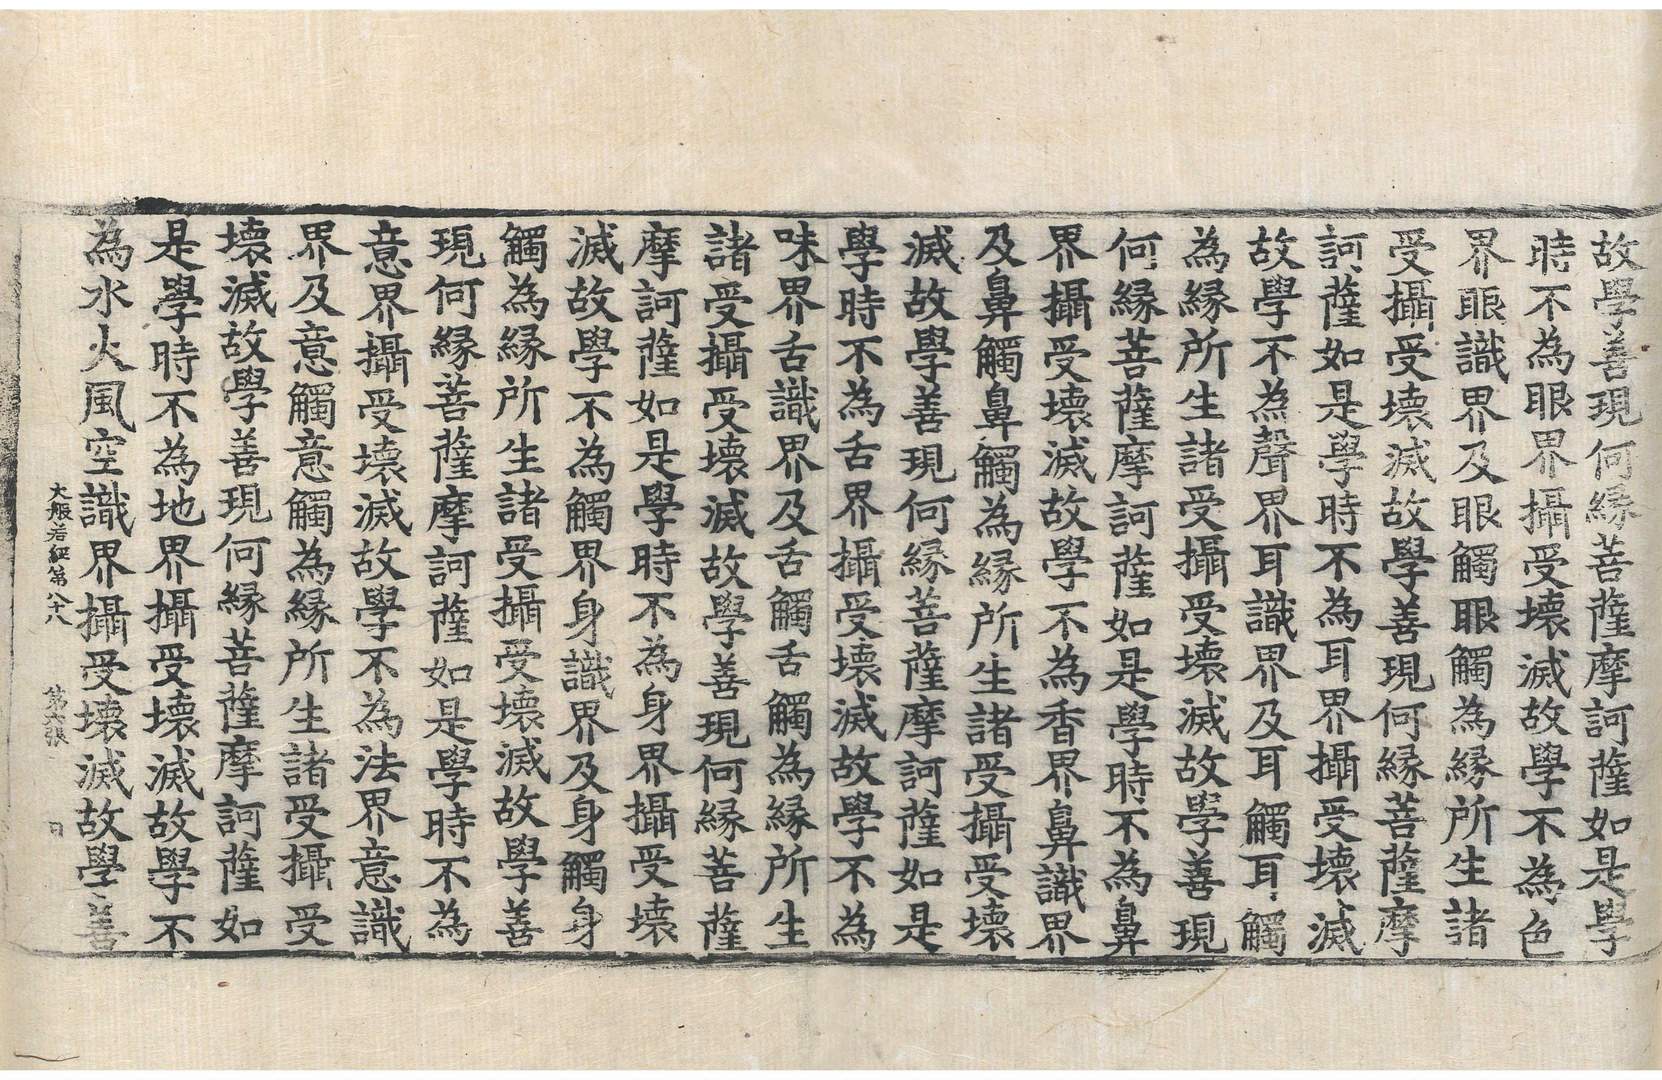 故學善現何緣菩薩摩訶薩如是學
時不為眼界攝受壞滅故學不為色
界眼識界及眼觸眼觸為緣所生諸
受攝受壞滅故學善現何緣菩薩摩
訶薩如是學時不為耳界攝受壞滅
故學不為聲界耳識界及耳觸耳觸
為緣所生諸受攝受壞滅故學善現
何緣菩薩摩訶薩如是學時不為鼻
界攝受壞滅故學不為香界鼻識界
及鼻觸鼻觸為緣所生諸受攝受壞
滅故學善現何緣菩薩摩訶薩如是
學時不為舌界攝受壞滅故學不為
味界舌識界及舌觸舌觸為緣所生
諸受攝受壞滅故學善現何緣菩薩
摩訶薩如是學時不為身界攝受壞
滅故學不為觸界身識界及身觸身
觸為緣所生諸受攝受壞滅故學善
現何緣菩薩摩訶薩如是學時不為
意界攝受壞滅故學不為法界意識
界及意觸意觸為緣所生諸受攝受
壞滅故學善現何緣菩薩摩訶薩如
是學時不為地界攝受壞滅故學不
為水火風空識界攝受壞滅故學善
大般若經第八十八 第六張